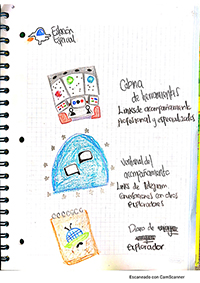 Estación
Espacial
Cabina
de herramientas
Links de acompañamiento
profesional y especializados
Ventana del
acompañamiento
Links de Telegram
conversaciones con otros
exploradores
Diario de
explorador
Escaneado con CamScanner